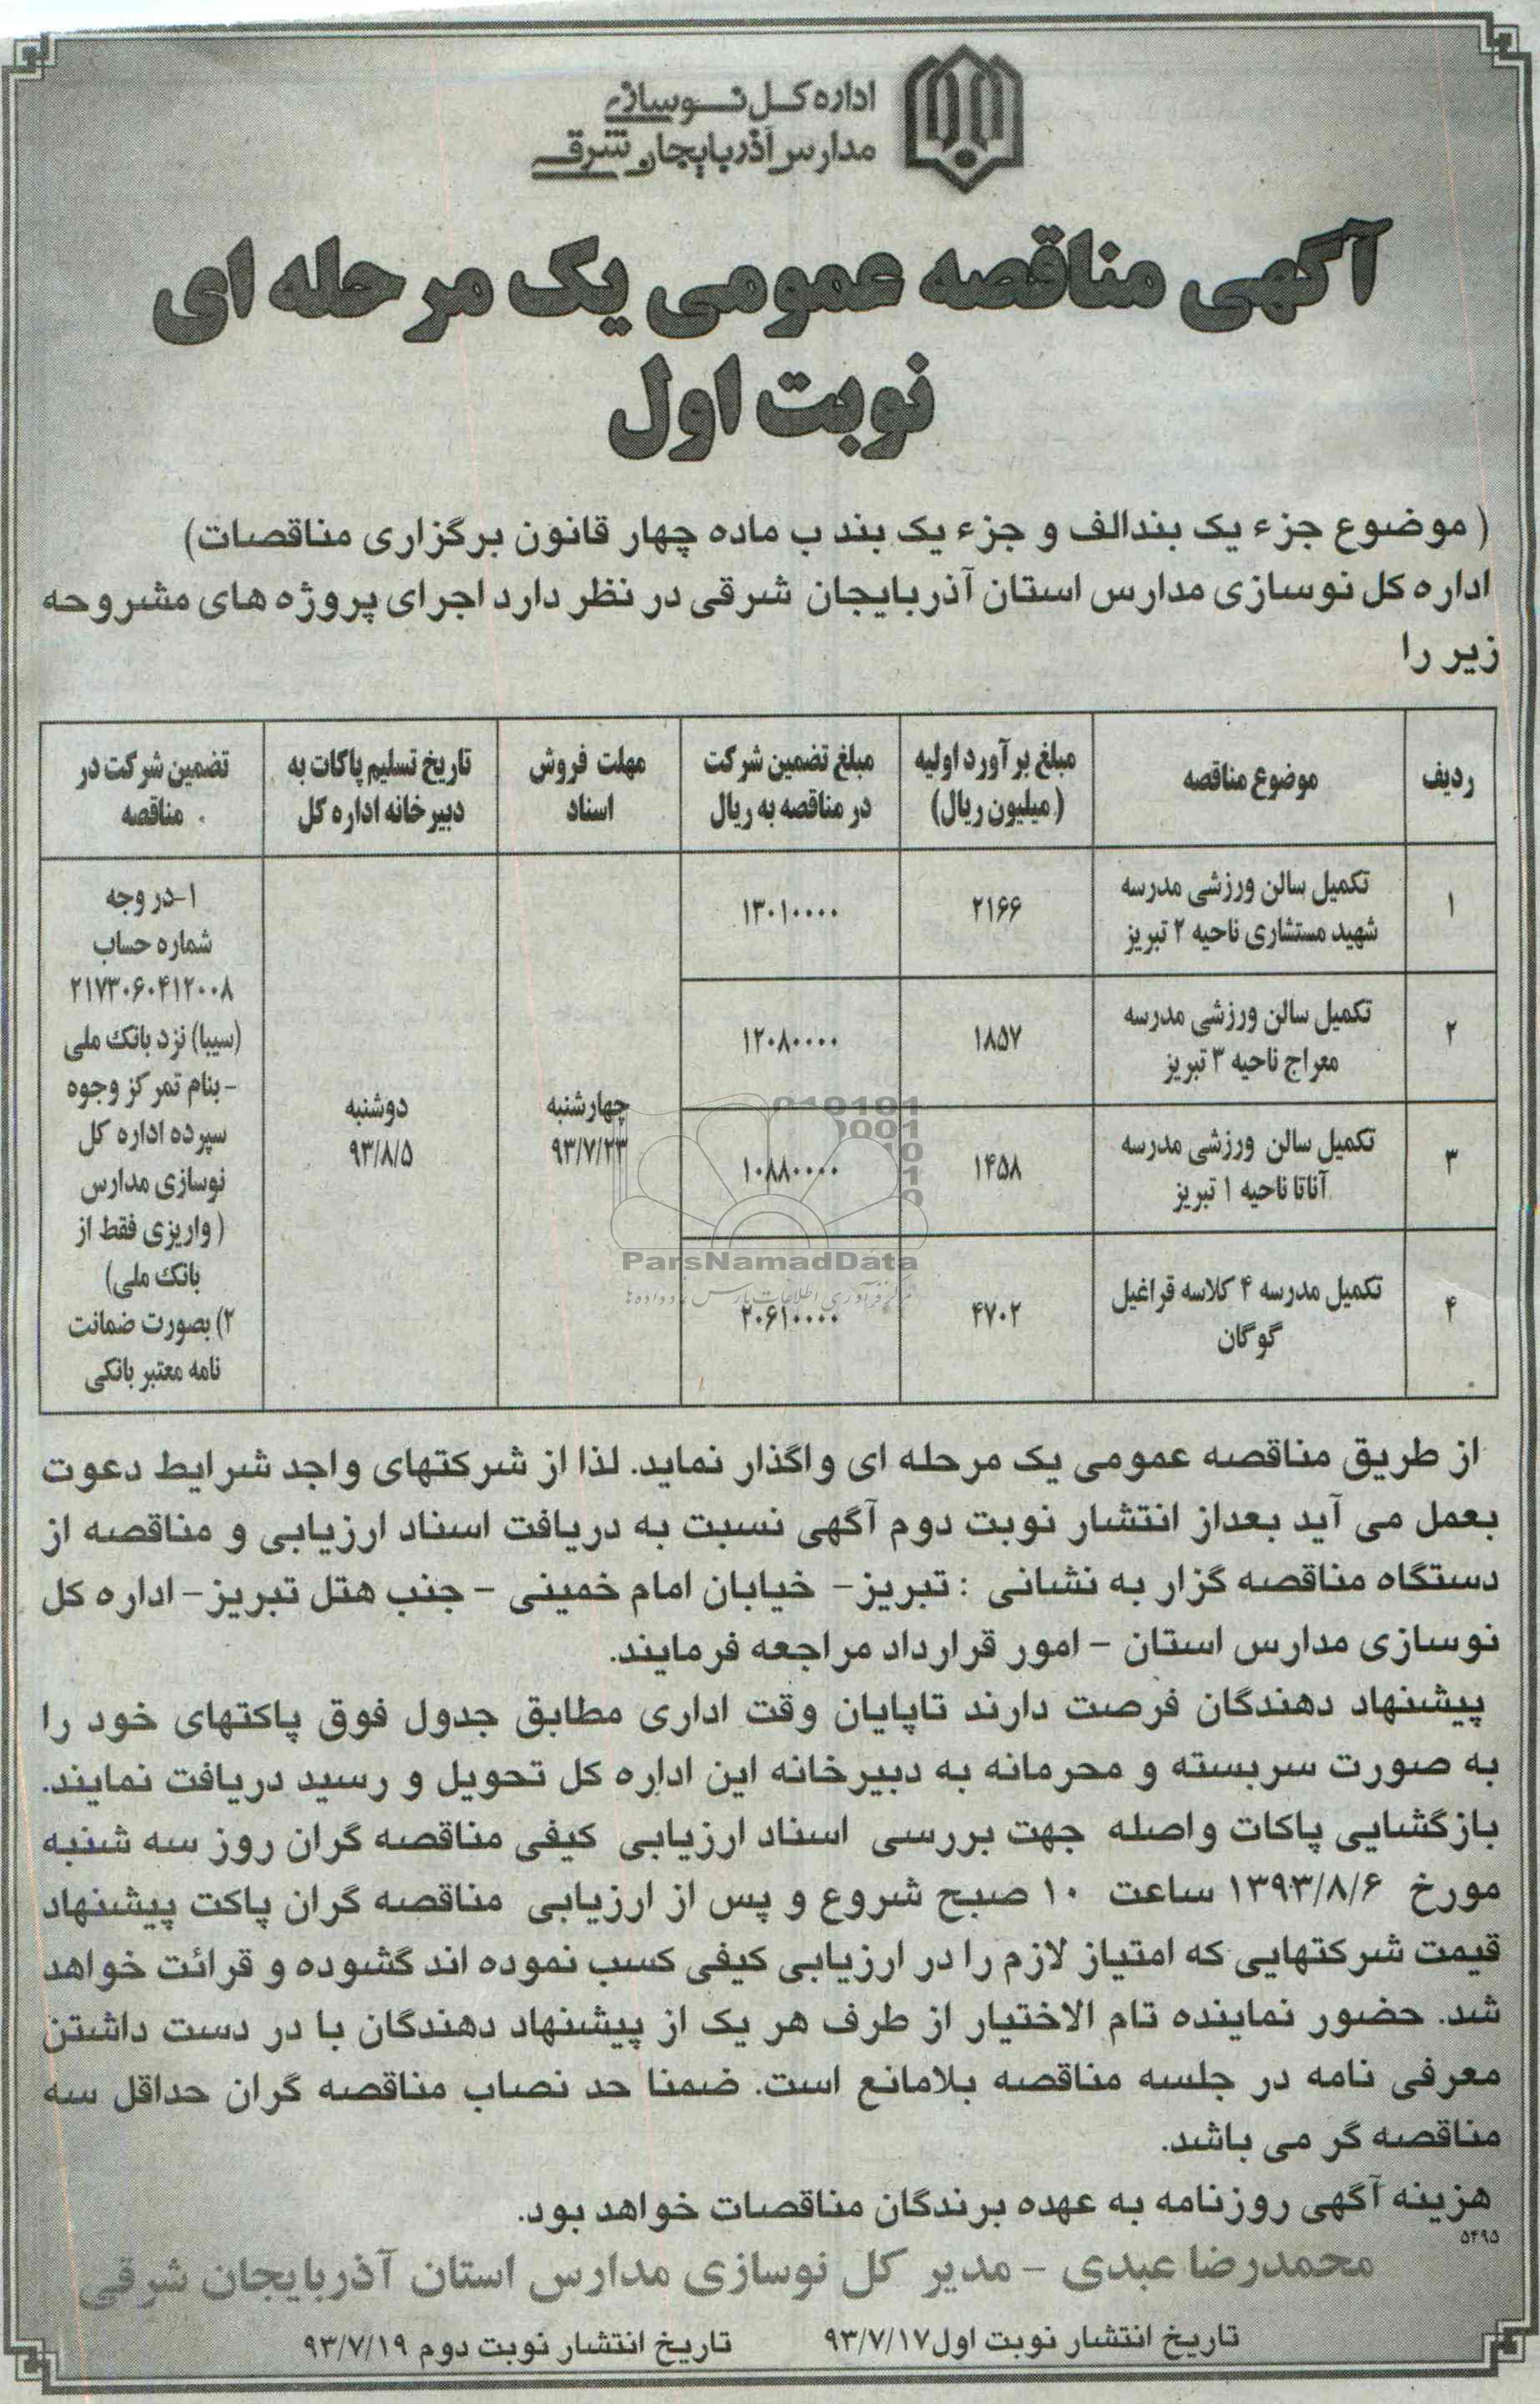 اداره کل نوسازی
مدارس آذربایجان شرقی
آگهی مناقصه عمومی یک مرحله ای
نوبت اول
( موضوع جزء یک بندالف و جزء یک بند ب ماده چهار قانون برگزاری مناقصات)
اداره کل نوسازی مدارس استان آذربایجان شرقی در نظر دارد اجرای پروژه های مشروحه
زیر را
ردیف
موضوع مناقصه
مبلغ برآورد اولیه
(میلیون ریال)
مبلغ تضمین شرکت
در مناقصه به ریال
مهلت فروش
اسناد
تاریخ تسلیم پاکات به
دبیرخانه اداره کل
تضمین شرکت در
مناقصه
۱
تکمیل سالن ورزشی مدرسه
شهید مستشاری ناحیه ۲ تبریز
۲۱۶۶
۱۳۰۱۰۰۰۰
۲
تکمیل سالن ورزشی مدرسه
معراج ناحیه ۳ تبریز
۱۸۵۷
۱۲۰۸۰۰۰۰
۳
تکمیل سالن ورزشی مدرسه
آناتا ناحیه ۱ تبریز
۱۴۵۸
۱۰۸۸۰۰۰۰
۴
تکمیل مدرسه ۴ کلاسه قراغیل
گوگان
۴۷۰۲
۲۰۶۱۰۰۰۰
چهارشنبه
۹۳/۷/۲۳
دوشنبه
۹۳/۸/۵
۱-در وجه
شماره حساب
۲۱۷۳۰۶۰۴۱۲۰۰۸
(سیبا) نزد بانک ملی
-بنام تمرکز وجوه
سپرده اداره کل
نوسازی مدارس
(واریزی فقط از
بانک ملی)
۲) بصورت ضمانت
نامه معتبر بانکی
ParsNamadData
از طریق مناقصه عمومی یک مرحله ای واگذار نماید. لذا از شرکتهای واجد شرایط دعوت
بعمل می آید بعداز انتشار نوبت دوم آگهی نسبت به دریافت اسناد ارزیابی و مناقصه از
دستگاه مناقصه گزار به نشانی : تبریز- خیابان امام خمینی - جنب هتل تبریز- اداره کل
نوسازی مدارس استان - امور قرارداد مراجعه فرمایند.
پیشنهاد دهندگان فرصت دارند تاپایان وقت اداری مطابق جدول فوق پاکتهای خود را
به صورت سربسته و محرمانه به دبیرخانه این اداره کل تحویل و رسید دریافت نمایند.
بازگشایی پاکات واصله جهت بررسی اسناد ارزیابی کیفی مناقصه گران روز سه شنبه
مورخ ۱۳۹۳/۸/۶ ساعت ۱۰ صبح شروع و پس از ارزیابی مناقصه گران پاکت پیشنهاد
قیمت شرکتهایی که امتیاز لازم را در ارزیابی کیفی کسب نموده اند گشوده و قرائت خواهد
شد. حضور نماینده تام الاختیار از طرف هر یک از پیشنهاد دهندگان با در دست داشتن
معرفی نامه در جلسه مناقصه بلامانع است. ضمنا حد نصاب مناقصه گران حداقل سه
مناقصه گر می باشد.
هزینه آگهی روزنامه به عهده برندگان مناقصات خواهد بود.
۵۴۹۵
محمدرضا عبدی - مدیر کل نوسازی مدارس استان آذربایجان شرقی
تاریخ انتشار نوبت اول۹۳/۷/۱۷ تاریخ انتشار نوبت دوم ۹۳/۷/۱۹